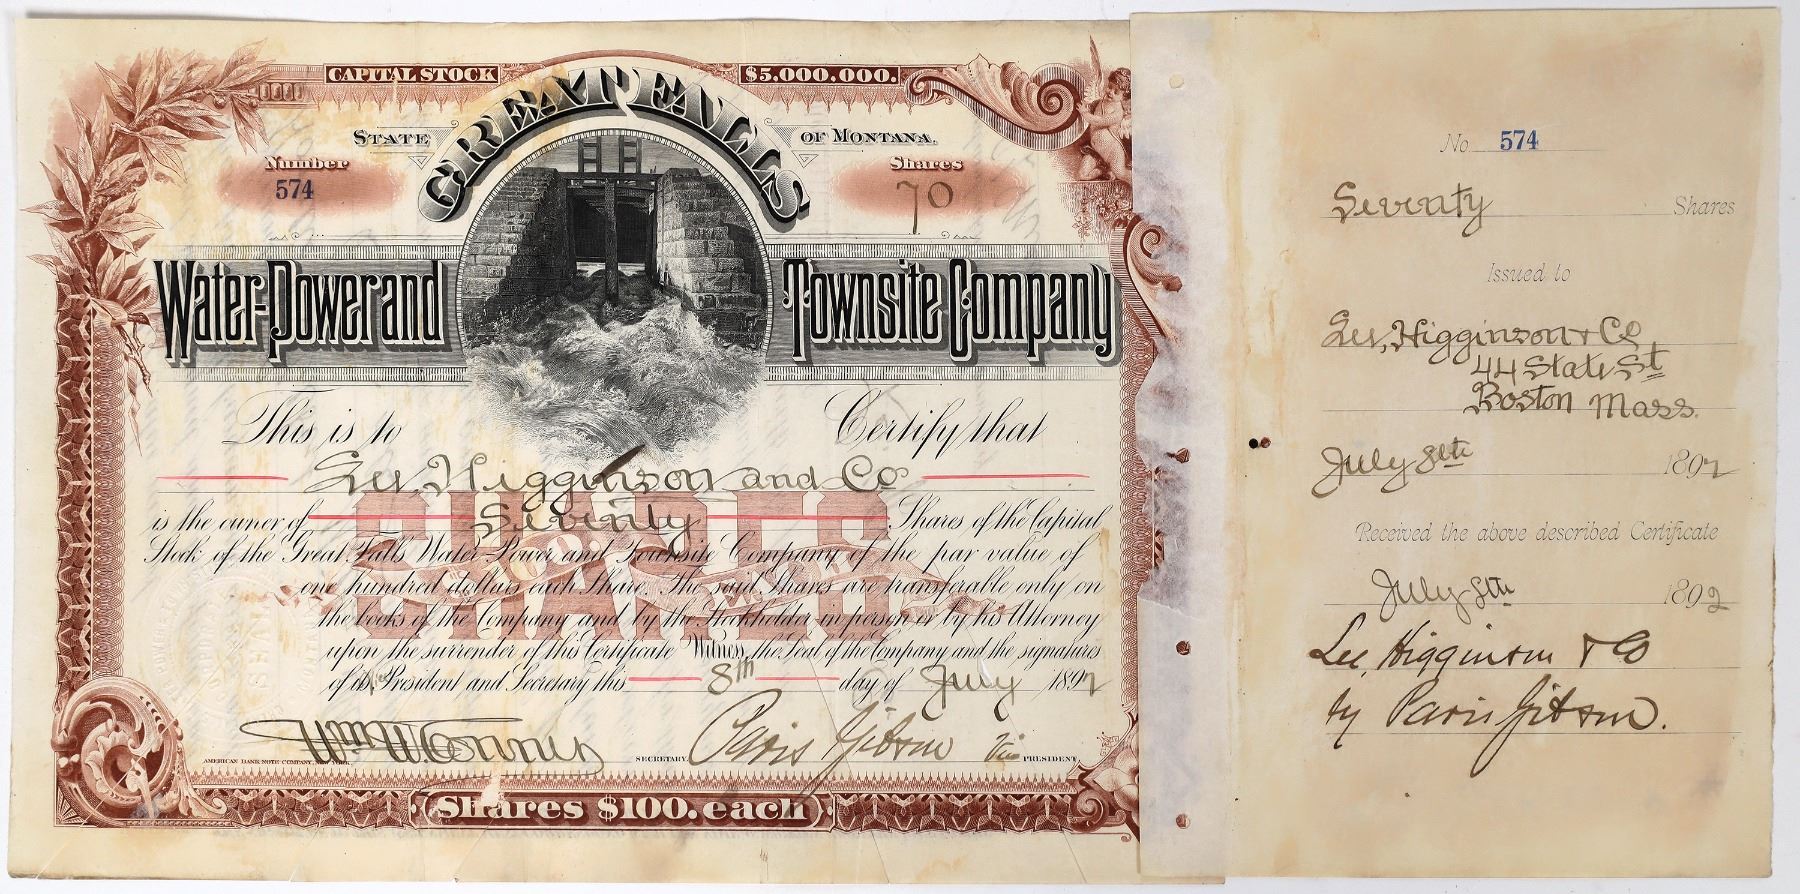 CAPITAL STOCK
$5.000,000.
GREAT FALLS
STATE
OF MONTANA.
Number
574
Shares
70
Water-Power and
Townsite Company
This is to
Certify that
Lee, Higginson and Co
is the owner of Seventy Shares of the Capital
Stock of the Great Falls Water-Power and Townsite Company of the par value of
one hundred dollars each Share. The said Shares are transferable only on
the books of the Company and by the Stockholder in person or by his Attorney
upon the surrender of this Certificate Witness, the Seal of the Company and the signatures
of its Vice President and Secretary this 8th day of July 1892
SHARES
$100. EACH
SEAL
SECRETARY.
Paris Gibson Vice PRESIDENT.
AMERICAN BANK NOTE COMPANY, NEW YORK.
Shares $100. each
No 574
Seventy Shares
Issued to
Lee, Higginson & Co
44 State St
Boston Mass.
July 8th 1892
Received the above described Certificate
July 8th 1892
Lee, Higginson & Co
by Paris Gibson.